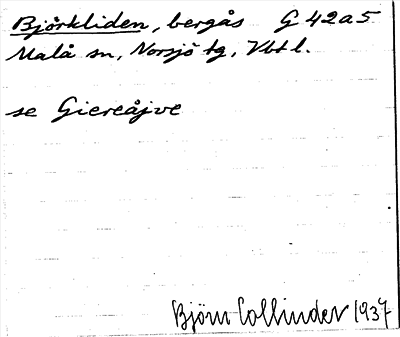 Björkliden, bergås G 42 a 5
Malå sn, Norsjö tg, Vbtl.
se Giereåjve
Björn Collinder 1937